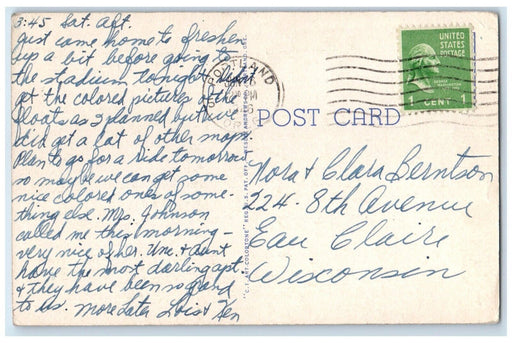 3:45 Sat. Aft.
Just came home to freshen
up a bit before going to
the stadium tonight. Didn't
get the colored pictures of the
floats as I planned but we
did get a lot of other
Plan to go for a ride tomorrow
so maybe we can get some
nice colored ones of some-
thing else. Mrs. Johnson
called me this morning -
very nice of her. Unc. & aunt
have the most darling apt.
& they have been so grand
to us. More Later Lois & Ken
PORTLAND
UNITED
STATES
POSTAGE
1 CENT 1
POST CARD
Nora & Clara Berntson
224 - 8th Avenue
Eau Claire
Wisconsin